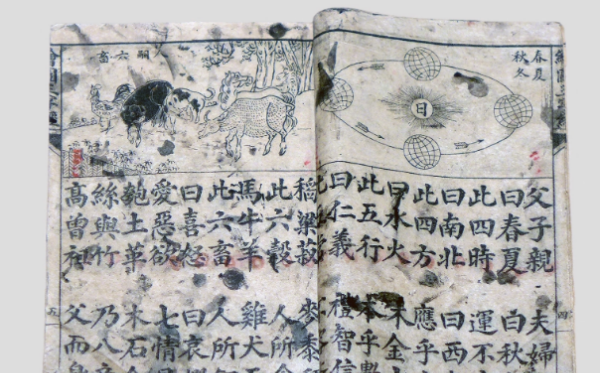 春夏
秋冬
日
父子親 夫婦
曰春夏 曰秋
此四時 運不
曰南北 曰西
此四方 應乎
曰水火 木金
此五行 本乎數
曰仁義 禮智信
四
六畜
稻粱菽 麥黍
此六穀 人所
馬牛羊 雞犬
此六畜 人所
曰喜怒 曰哀
愛惡欲 七情
匏土革 木石
絲與竹 乃八
高曾祖 父而
五